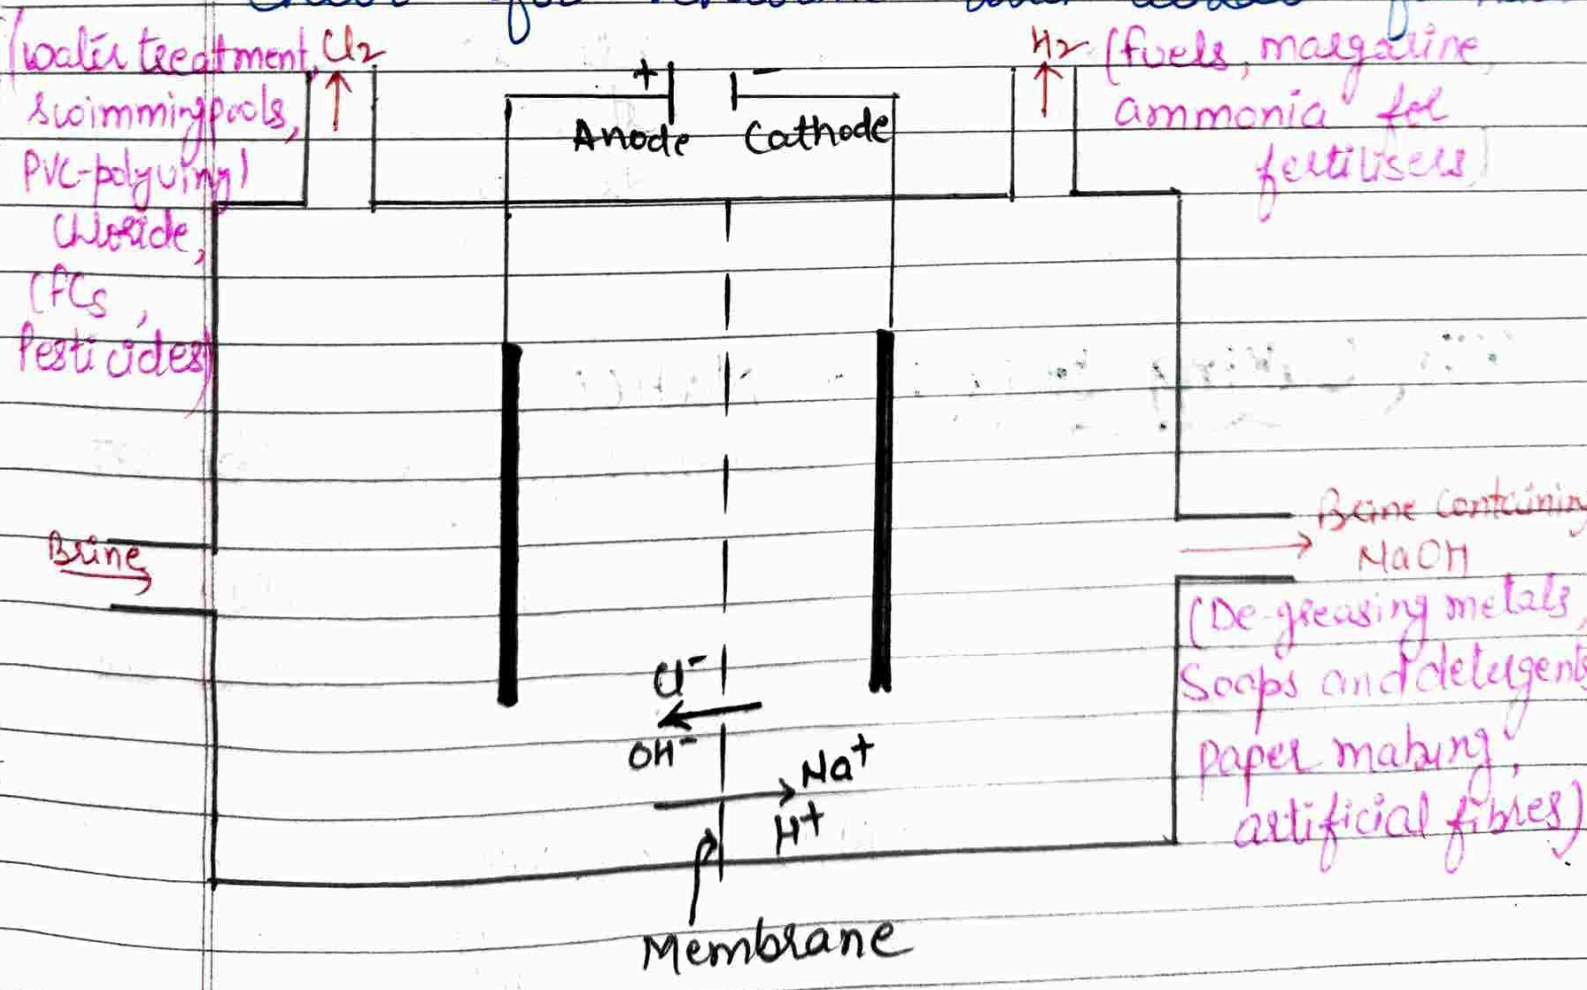 (water treatment,
swimming pools,
PVC-polyvinyl
Chloride,
CFCs,
Pesticides)
Cl2
+
-
Anode
Cathode
H2
(fuels, margarine,
ammonia for
fertilisers)
Brine
Brine Containing
NaOH
(De-greasing metals,
Soaps and detergents
Paper making,
artificial fibres)
Cl-
OH-
Na+
H+
Membrane